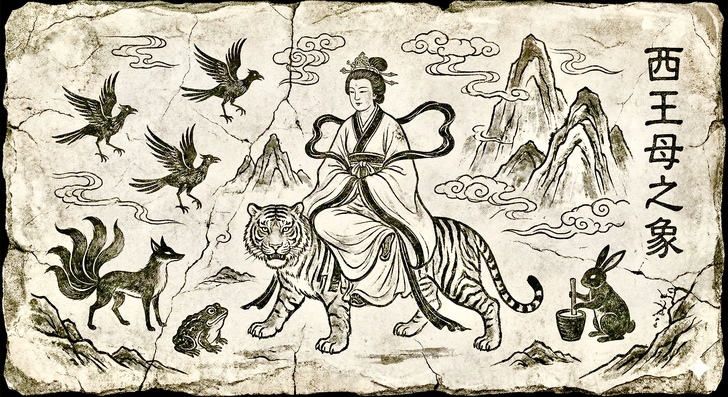 西王母之象